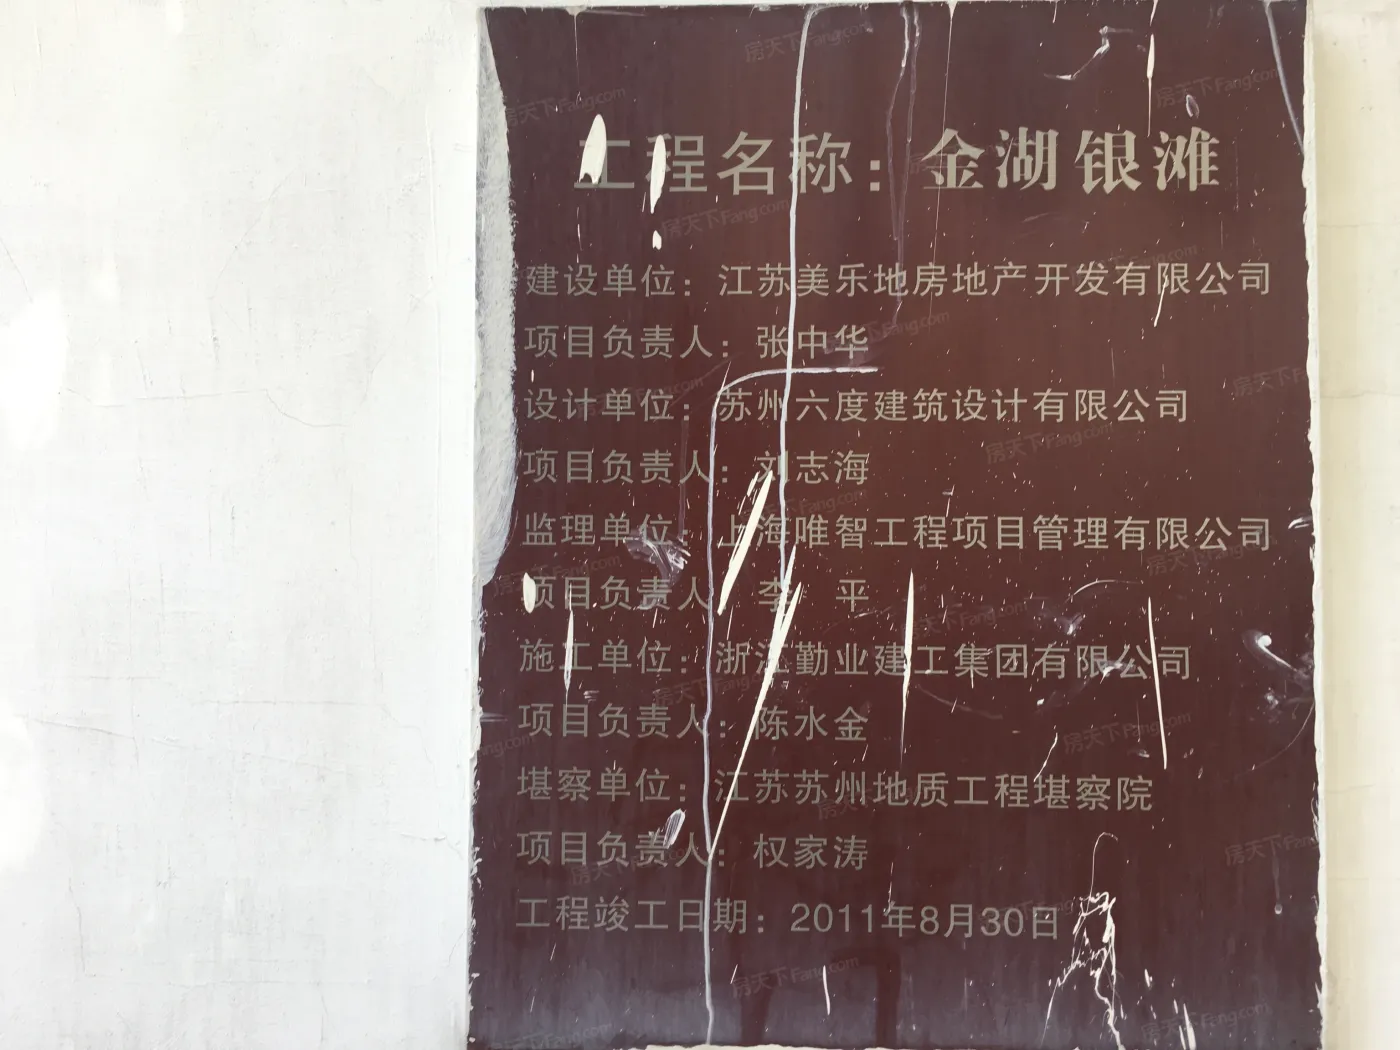 工程名称：金湖银滩
建设单位：江苏美乐地房地产开发有限公司
项目负责人：张中华
设计单位：苏州六度建筑设计有限公司
项目负责人：刘志海
监理单位：上海唯智工程项目管理有限公司
项目负责人 李 平
施工单位：浙江勤业建工集团有限公司
项目负责人：陈水金
堪察单位：江苏苏州地质工程堪察院
项目负责人：权家涛
工程竣工日期：2011年8月30日
房天下Fang.com